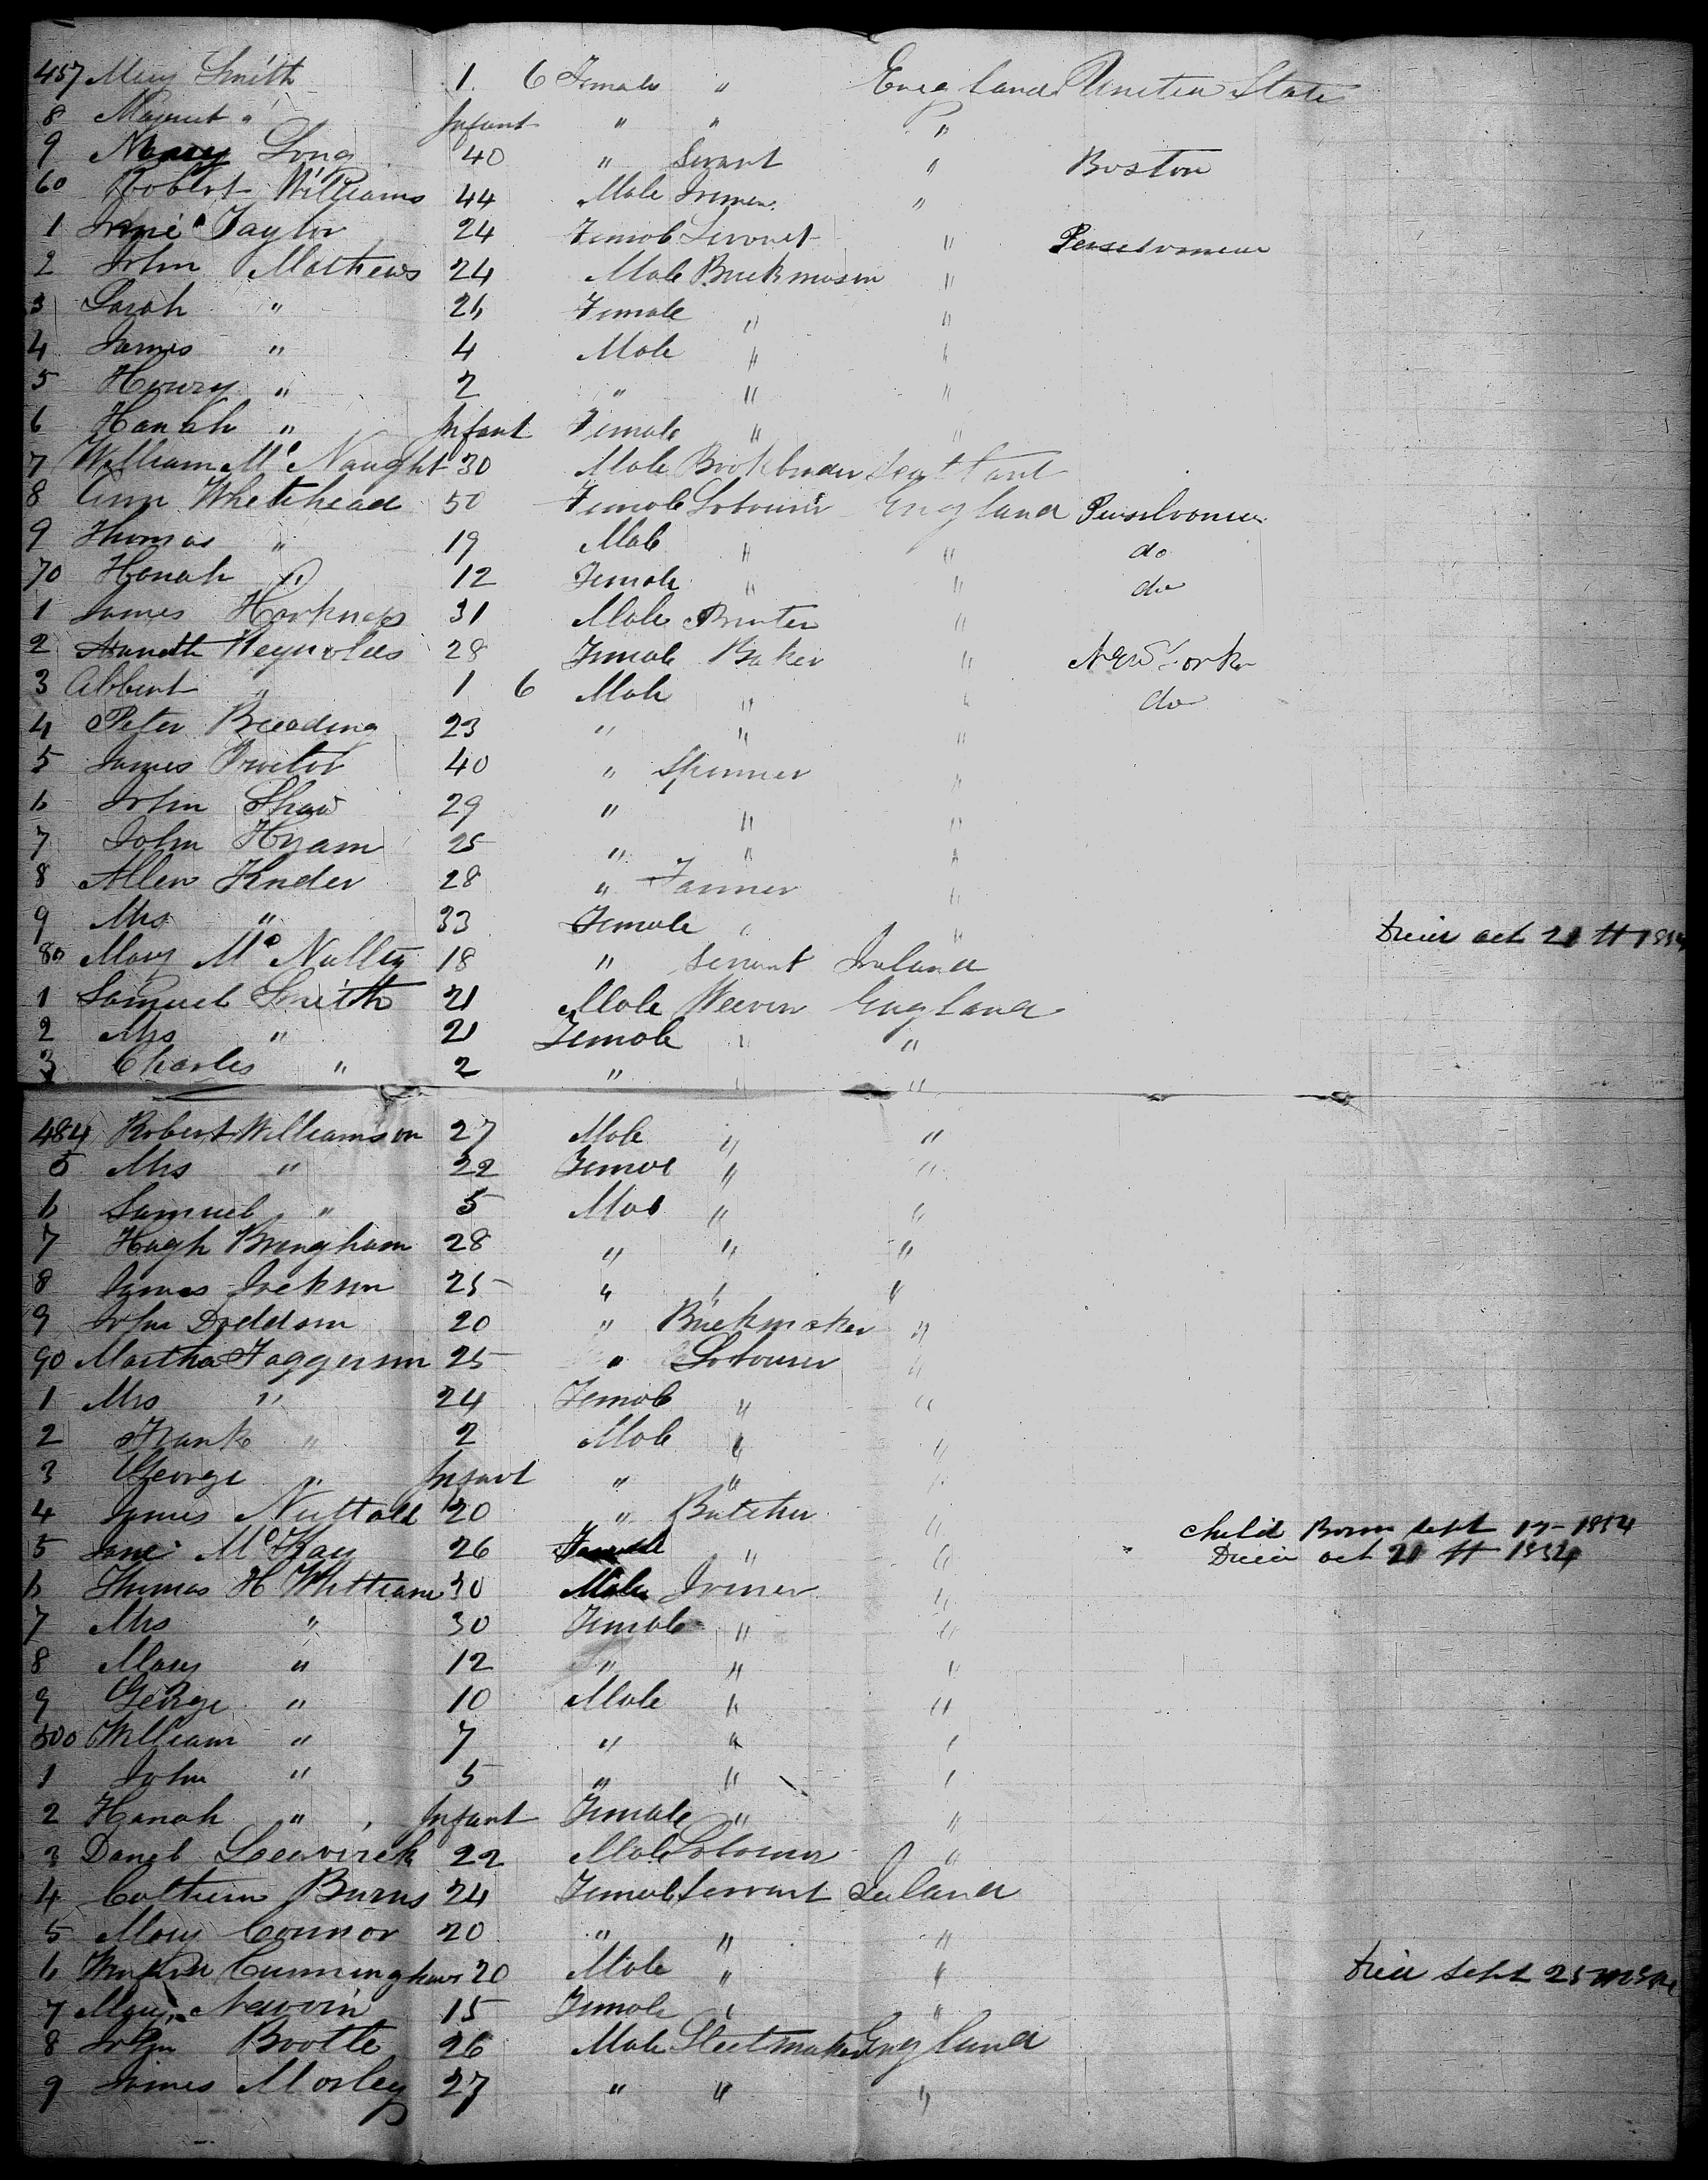 457 Mary Smith 1. 6 Female " England United State
8 Magreret " Infant " " "
9 Mary Long 40 " Servant " Boston
60 Robert Williams 44 Male "
1 Jane Taylor 24 Female Servant " Penselvaneia
2 John Mathews 24 Male Brickmason "
3 Sarah " 26 Female " "
4 James " 4 Male " "
5 Henry " 2 " " "
6 Hanah " Infant Female " "
7 William Mc Naught 30 Male Bookbinder Scotland
8 Ann Whitehead 50 Female Labourer England Penselvaneia
9 Thomas " 19 Male " " do
70 Hanah " 12 Female " " do
1 James Harkness 31 Male Printer "
2 Reynolds 28 Female Baker " New York
3 Albert " 1 6 Male " " do
4 Peter Breading 23 " " "
5 James Procter 40 " Spinner "
6 John Shaw 29 " " "
7 John Hyam 25 " " "
8 Allen Kinder 28 " Farmer "
9 Mrs " 33 Female " " Died oct 21 st 1854
80 Mary Mc Nulty 18 " Servant Ireland
1 Samuel Smith 21 Male Weever England
2 Mrs " 21 Female " "
3 Charles " 2 " " "
484 Robert Williamson 27 Male " "
5 Mrs " 22 Female " "
6 Samuel " 5 Male " "
7 Hugh Bringham 28 " " "
8 James Jackson 25 " " "
9 John Doddson 20 " Brickmaker "
90 Martha Faggerson 25 " Labourer "
1 Mrs " 24 Female " "
2 Frank " 2 Male " "
3 George " Infant " " "
4 James Nuttall 20 " Butcher "
child Born sept 17 - 1854
5 Jane McKay 26 Female " " Died oct 21 st 1854
6 Thomas H Whittam 30 Male Joiner "
7 Mrs " 30 Female " "
8 Mary " 12 " " "
9 George " 10 Male " "
500 William " 7 " " "
1 John " 5 " " "
2 Hanah " Infant Female " "
3 Danel 22 Male Labourer "
4 Cathrin Burns 24 Female Servant Ireland
5 Mary Connor 20 " " "
6 Cunningham 20 Male " " Died Sept 25
7 Mary 15 Female " "
8 John Bootle 26 Male England
9 James Morley 27 " " "